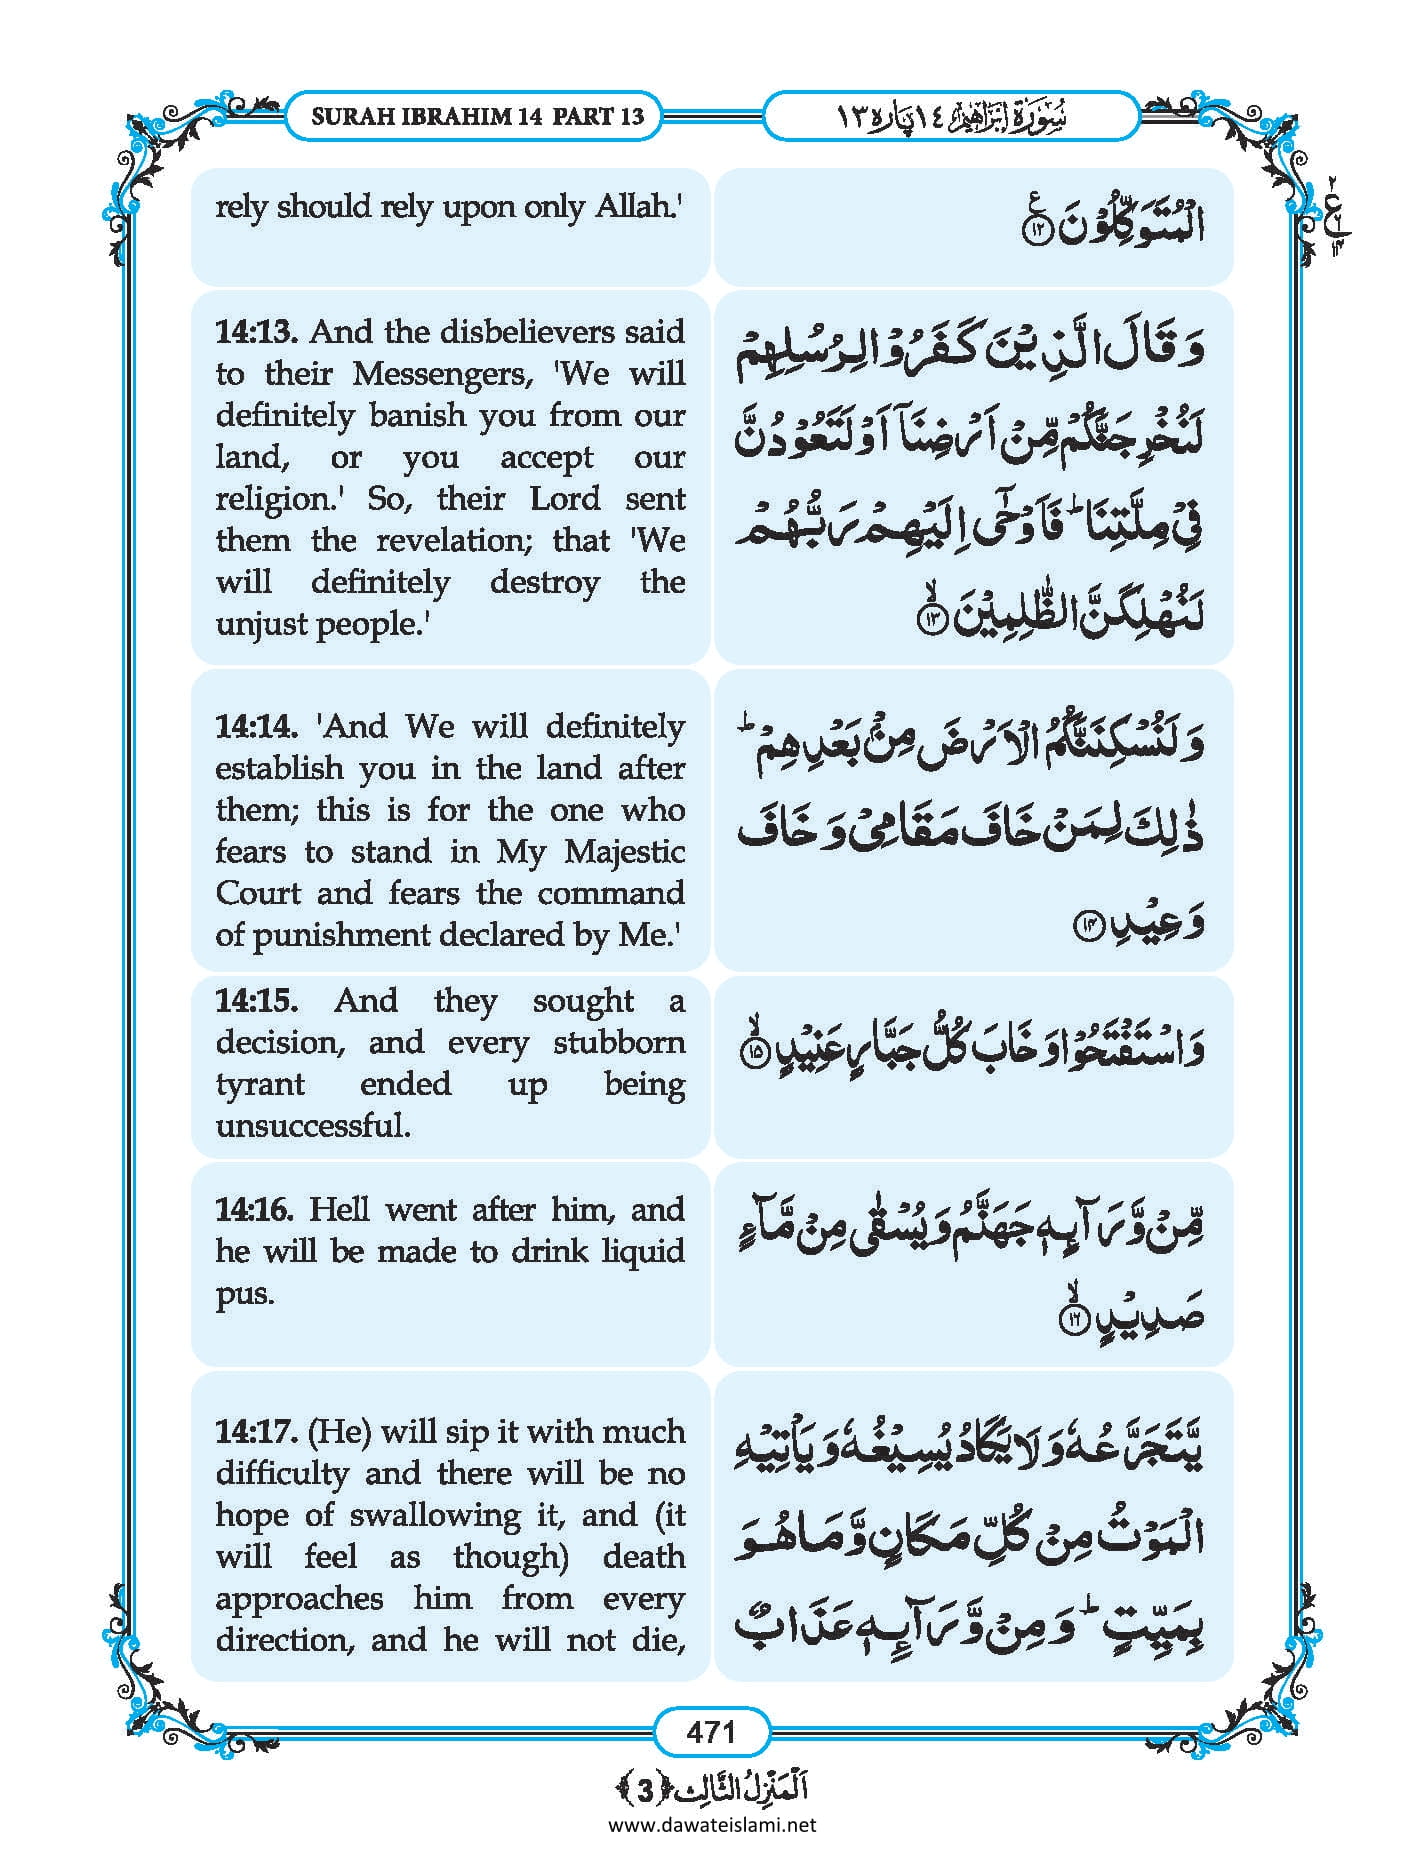 SURAH IBRAHIM 14 PART 13
سُوْرَةُ اِبْرٰهِيْم ١٤ پَارَه ١٣
rely should rely upon only Allah.'
الْمُتَوَكِّلُوْنَ ﴿۱۲﴾ ع
14:13. And the disbelievers said
to their Messengers, 'We will
definitely banish you from our
land, or you accept our
religion.' So, their Lord sent
them the revelation; that 'We
will definitely destroy the
unjust people.'
وَ قَالَ الَّذِیْنَ كَفَرُوْا لِرُسُلِهِمْ
لَنُخْرِجَنَّكُمْ مِّنْ اَرْضِنَاۤ اَوْ لَتَعُوْدُنَّ
فِیْ مِلَّتِنَا ؕ فَاَوْحٰۤی اِلَیْهِمْ رَبُّهُمْ
لَنُهْلِكَنَّ الظّٰلِمِیْنَ ﴿ۙ۱۳﴾
14:14. 'And We will definitely
establish you in the land after
them; this is for the one who
fears to stand in My Majestic
Court and fears the command
of punishment declared by Me.'
وَ لَنُسْكِنَنَّكُمُ الْاَرْضَ مِنْۢ بَعْدِهِمْ ؕ
ذٰلِكَ لِمَنْ خَافَ مَقَامِیْ وَ خَافَ
وَعِیْدِ ﴿۱۴﴾
14:15. And they sought a
decision, and every stubborn
tyrant ended up being
unsuccessful.
وَ اسْتَفْتَحُوْا وَ خَابَ كُلُّ جَبَّارٍ عَنِیْدٍ ﴿ۙ۱۵﴾
14:16. Hell went after him, and
he will be made to drink liquid
pus.
مِّنْ وَّرَآىِٕهٖ جَهَنَّمُ وَ یُسْقٰی مِنْ مَّآءٍ
صَدِیْدٍ ﴿ۙ۱۶﴾
14:17. (He) will sip it with much
difficulty and there will be no
hope of swallowing it, and (it
will feel as though) death
approaches him from every
direction, and he will not die,
یَّتَجَرَّعُهٗ وَ لَا یَكَادُ یُسِیْغُهٗ وَ یَاْتِیْهِ
الْمَوْتُ مِنْ كُلِّ مَكَانٍ وَّ مَا هُوَ
بِمَیِّتٍ ؕ وَ مِنْ وَّرَآىِٕهٖ عَذَابٌ
471
اَلْمَنْزِلُ الثَّالِث ﴿3﴾
www.dawateislami.net